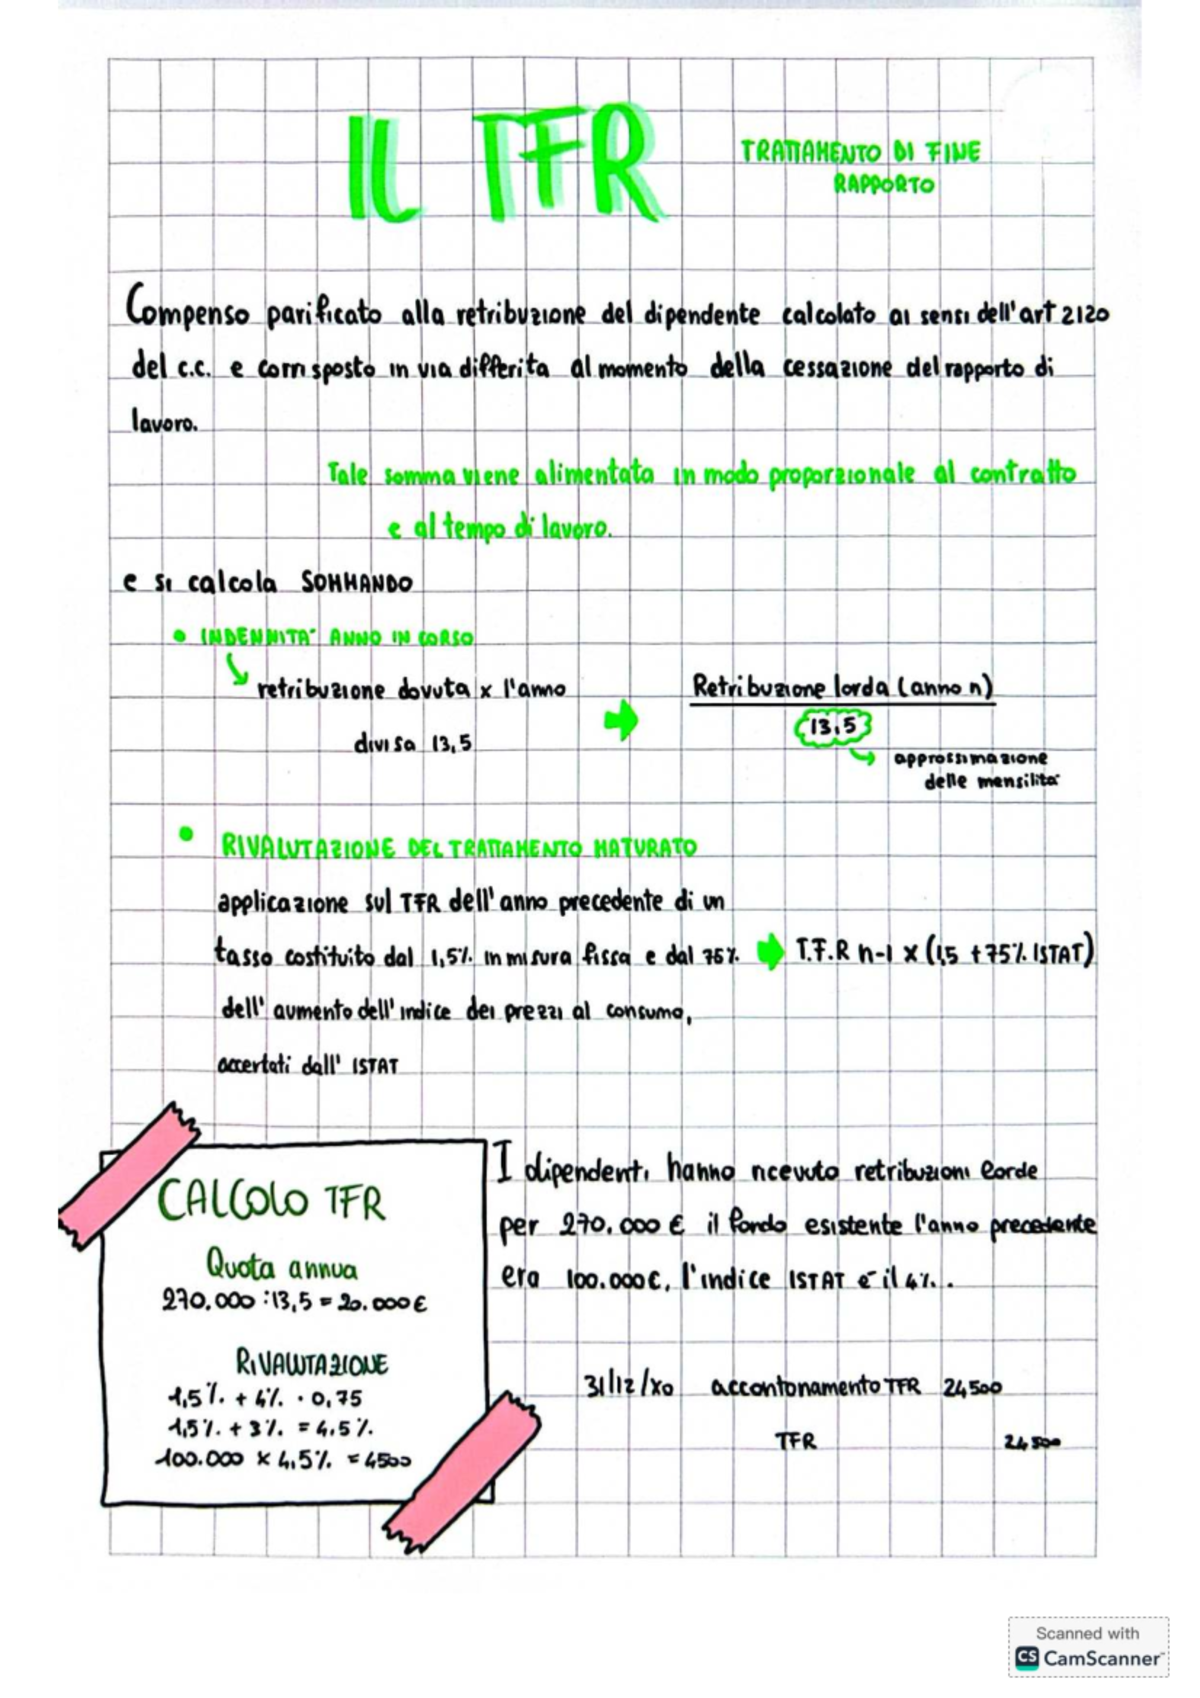 IL TFR
TRATTAMENTO DI FINE
RAPPORTO
Compenso parificato alla retribuzione del dipendente calcolato ai sensi dell'art 2120
del c.c. e corrisposto in via differita al momento della cessazione del rapporto di
lavoro.
Tale somma viene alimentata in modo proporzionale al contratto
e al tempo di lavoro.
e si calcola SOMMANDO
• INDENNITA' ANNO IN CORSO
retribuzione dovuta x l'anno
divisa 13,5
Retribuzione lorda (anno n)
13,5
approssimazione
delle mensilità
• RIVALUTAZIONE DEL TRATTAMENTO MATURATO
applicazione sul TFR dell'anno precedente di un
tasso costituito dal 1,5% in misura fissa e dal 75%
T.F.R n-1 x (1,5 + 75% ISTAT)
dell'aumento dell'indice dei prezzi al consumo,
accertati dall'ISTAT
CALCOLO TFR
Quota annua
270.000 : 13,5 = 20.000 €
RIVALUTAZIONE
1,5% + 4% · 0,75
1,5% + 3% = 4,5%
100.000 x 4,5% = 4500
I dipendenti hanno ricevuto retribuzioni lorde
per 270.000 € il fondo esistente l'anno precedente
era 100.000 €, l'indice ISTAT è il 4%..
31/12/x0 accontonamento TFR 24500
TFR 24500
Scanned with
CS CamScanner